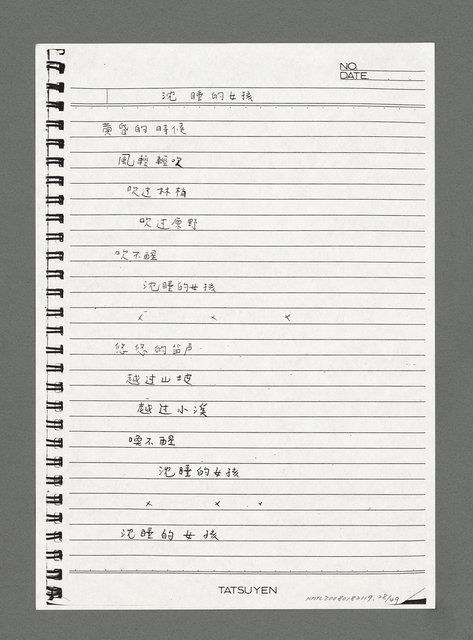 NO.
DATE
沈睡的女孩
黄昏的時候
風輕輕吹
吹过林梢
吹过原野
吹不醒
沈睡的女孩
x x x
悠悠的笛声
越过山坡
越过小溪
喚不醒
沈睡的女孩
x x x
沈睡的女孩
TATSUYEN
NMTL20080182119.28/49